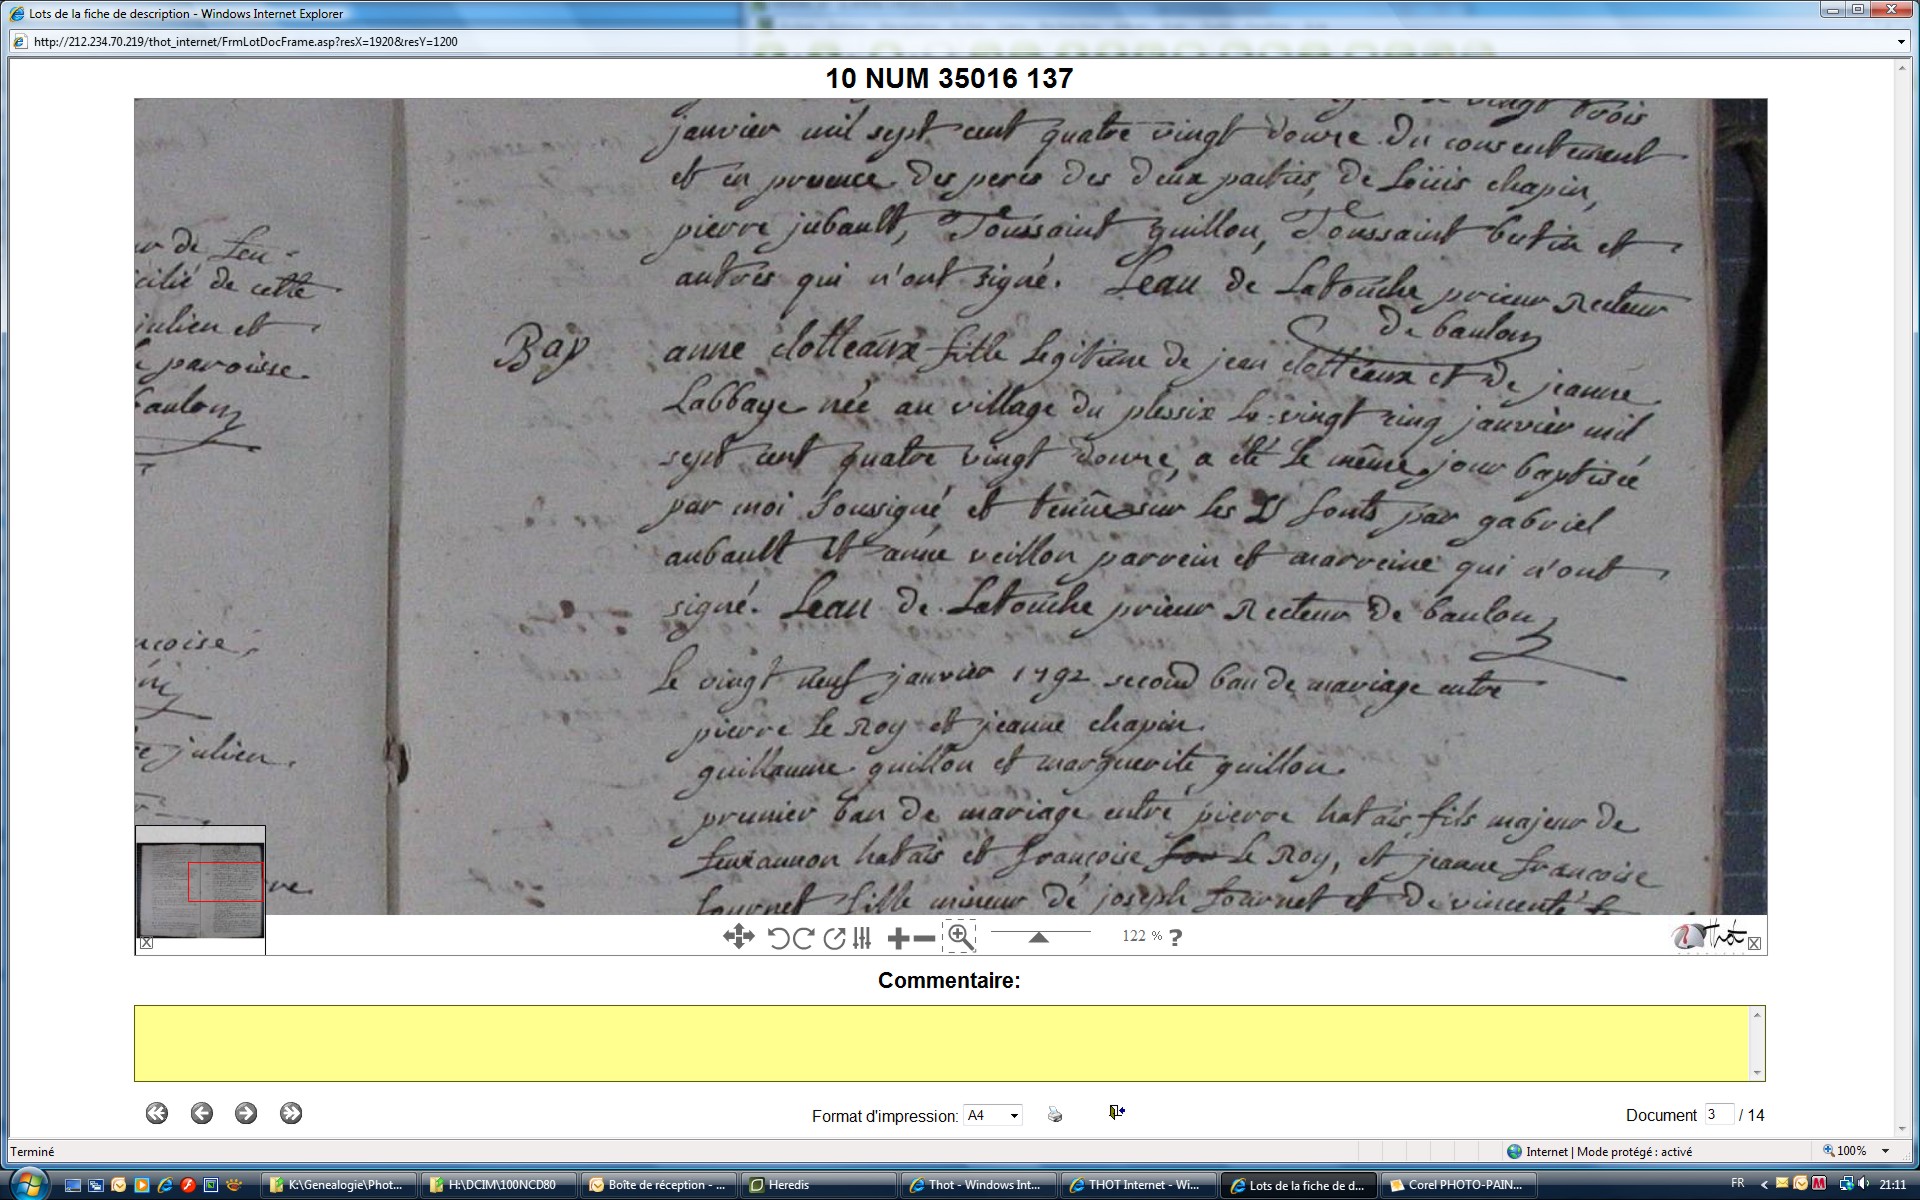 Lots de la fiche de description - Windows Internet Explorer
http://212.234.70.219/thot_internet/FrmLotDocFrame.asp?resX=1920&resY=1200
10 NUM 35016 137
vingt trois
janvier mil sept cent quatre vingt douze du consentement
et en presence des peres des deux parties, de Loüis chapin,
pierre jubault, Toussaint guillou, Toussaint bertin et
autres qui n'ont signé. Leau de Latouche prieur Recteur
de baulon
Bap
anne clotteaux fille legitime de jean clotteaux et de jeanne
Labbaye née au village du plessix le vingt cinq janvier mil
sept cent quatre vingt douze, a été le même jour baptisée
par moi soussigné et tenüe sur les Sts fonts par gabriel
aubault et anne veillon parrein et marreine qui n'ont
signé. Leau de Latouche prieur Recteur de baulon
Le vingt neuf janvier 1792 second ban de mariage entre
pierre le Roy et jeanne chapin.
guillaume guillou et marguerite guillou.
premier ban de mariage entre pierre hatais fils majeur de
hatais et françoise le Roy, et jeanne françoise
fournet fille mineur de joseph fournet et de vincente
de feu
cilié de cette
julien et
paroisse.
baulon
ncoise,
julien.
122 % ?
Thot
Commentaire:
Format d'impression: A4
Document 3 / 14
Terminé
Internet | Mode protégé : activé
100%
K:\Genealogie\Phot...
H:\DCIM\100NCD80
Boîte de réception - ...
Heredis
Thot - Windows Int...
THOT Internet - Wi...
Lots de la fiche de d...
Corel PHOTO-PAIN...
FR
21:11